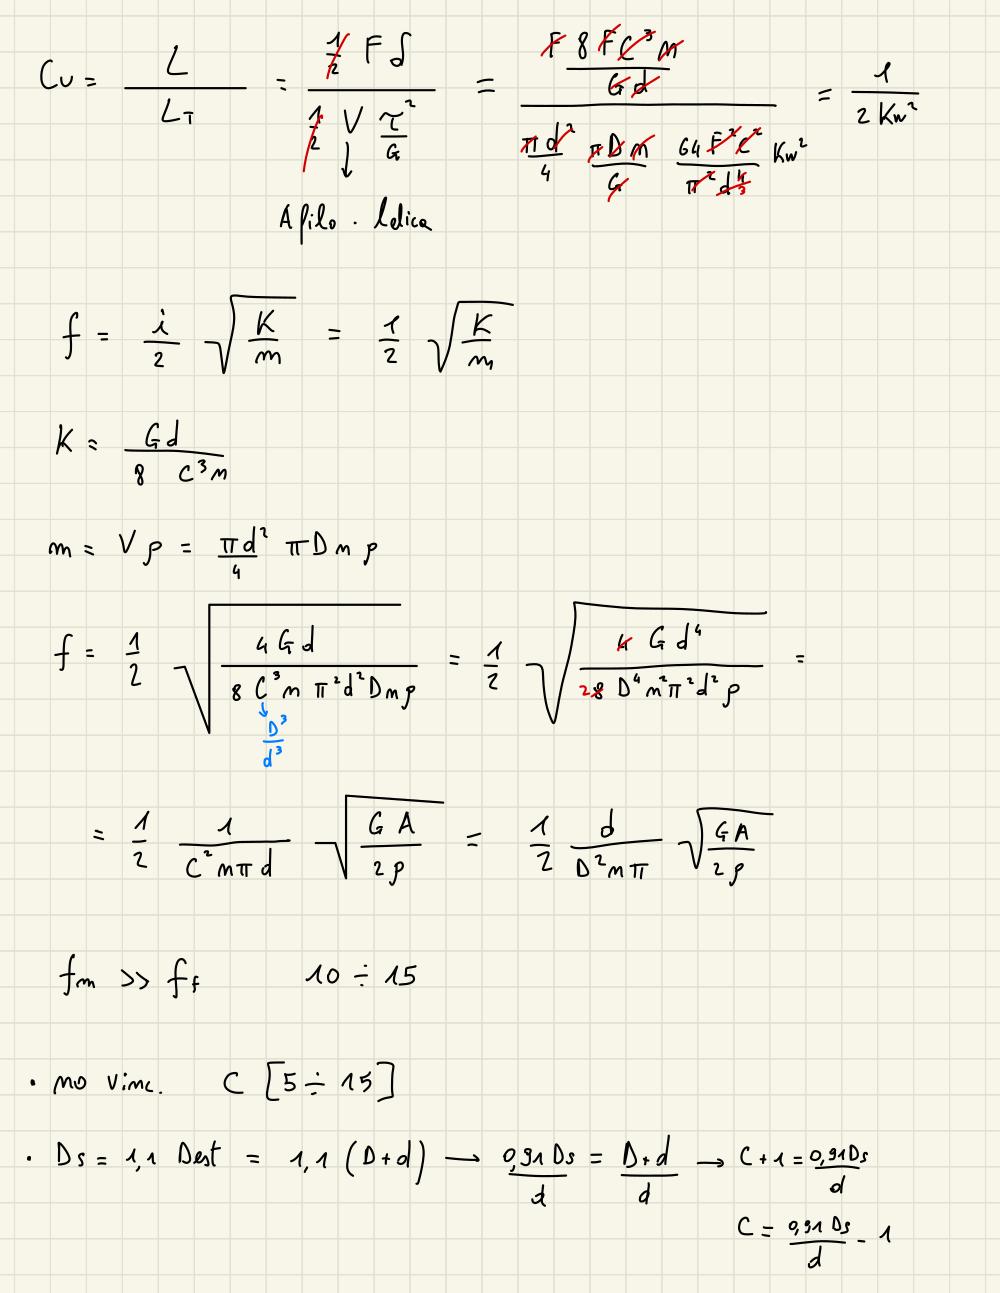 Cu = L / L_T = 1/2 F δ / 1/2 V τ²/G = F 8 F C³ n / G d / πd²/4 πDn/G 64F²C²/π²d⁴3 Kw² = 1 / 2 Kw²
A filo . lelica
f = i/2 √(K/m) = 1/2 √(K/m)
K = Gd / 8 C³n
m = Vρ = πd²/4 πDnρ
f = 1/2 √(4Gd / 8 C³n π²d²Dnρ) = 1/2 √(4 G d⁴ / 2 8 D⁴n²π²d²ρ) =
D³/d³
= 1/2 1/(C²nπd) √(GA/2ρ) = 1/2 d/(D²nπ) √(GA/2ρ)
fm >> ff 10 ÷ 15
· no vinc. C [5 ÷ 15]
· Ds = 1,1 Dest = 1,1 (D+d) → 0,91Ds/d = D+d/d → C+1 = 0,91Ds/d
C = 0,91 Ds/d - 1